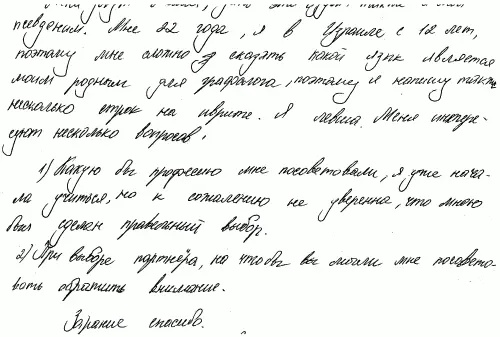 псевдоним. Мне 22 года, я в Израиле с 12 лет,
поэтому мне сложно сказать какой язык является
моим родным для графолога, поэтому я напишу также
несколько строк на иврите. Я левша. Меня интере-
суют несколько вопросов:
1) Какую бы професию мне посоветовали, я уже нача-
ла учиться, но к сожалению не уверенна, что мною
был сделан правельный выбор.
2) При выборе партнёра, на что бы вы могли мне посовето-
вать обратить внимание.
Зарание спасибо.